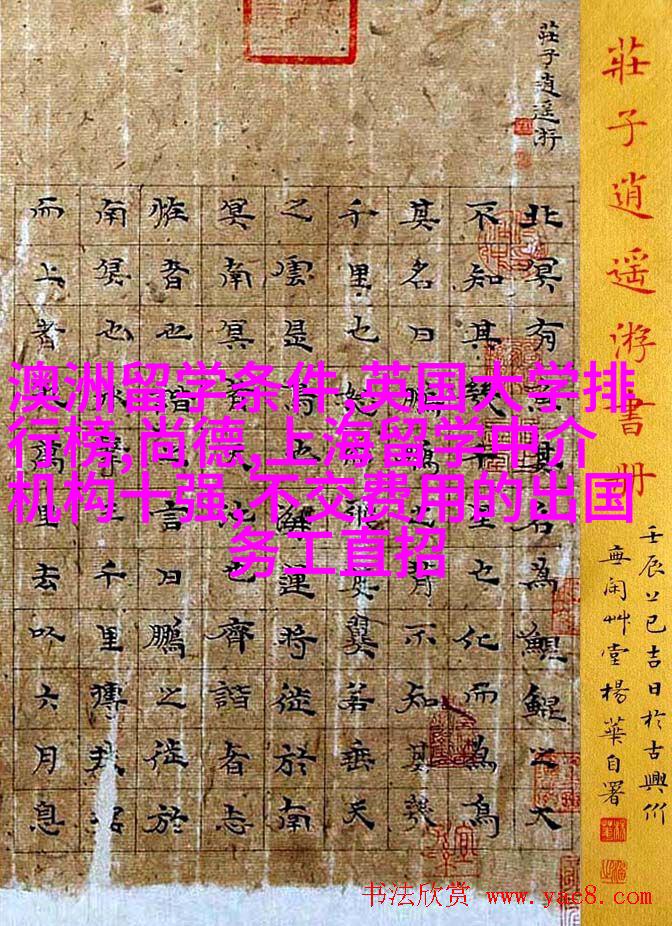 莊子逍遥游書册
壬辰乙巳吉日於古興
閑艸堂楊華自署
莊子逍遥游
北冥有魚其名為鯤鯤之大
不知其幾千里也化而為鳥
其名曰鵬鵬之背不知其幾
千里也怒而飛其翼若垂天
之雲是鳥也海運將徙於南
冥南冥者天池也齊諧者志
怪者也諧之言曰鵬之徙於
南冥也水擊三千里摶扶搖
而上者九萬里去以六月息
澳洲留学条件,英国大学排
行榜,尚德,上海留学中介
机构十强,不交费用的出国
务工直招
书法欣赏 www.yac8.com